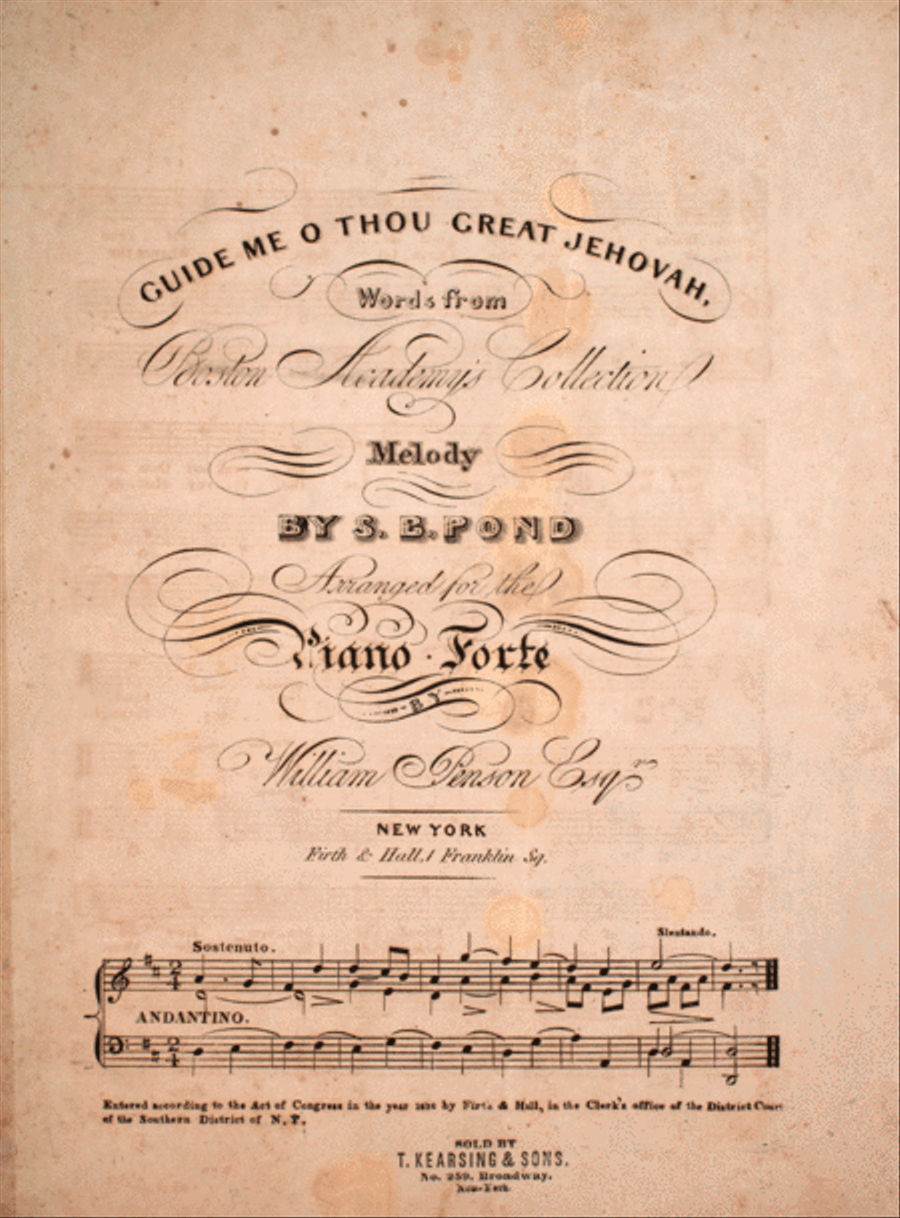 GUIDE ME O THOU GREAT JEHOVAH,
Words from
Boston Academy's Collection
Melody
BY S. B. POND
Arranged for the
Piano Forte
BY
William Penson Esqr.
NEW YORK
Firth & Hall, 1 Franklin Sq.
Sostenuto.
Slentando.
ANDANTINO.
2 4
2 4
Entered according to the Act of Congress in the year by Firth & Hall, in the Clerk's office of the District Court
of the Southern District of N. Y.
SOLD BY
T. KEARSING & SONS.
No. 259, Broadway.
New-York.